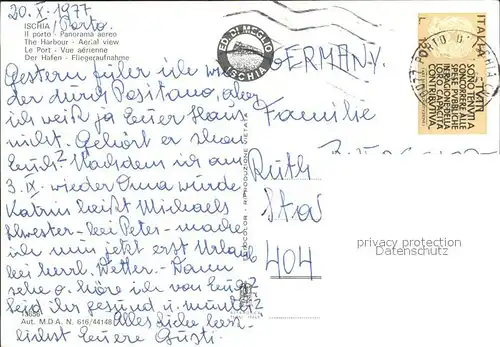 20. X. 1977
ISCHIA / Porto.
Il porto - Panorama aereo
The Harbour - Aerial view
Le Port - Vue aérienne
Der Hafen - Fliegeraufnahme
Gestern fuhr ich wie-
der durch Positano, aber
ich weiß ja Euer Haus
nicht. Gehört er schon
Euch? Nachdem ich am
3. IX. wieder Oma wurde
Katrin heißt Michaels
Schwester - bei Peter - mache
ich nun jetzt erst Urlaub
bei herrl. Wetter. - Dann
sehe o. höre ich von Euch?
Seid ihr gesund u. munter?
Alles Liebe herz-
lichst Euere Gusti.
Aut. M.D.A. N. 616/44148
ED. DI MEGLIO
ISCHIA
RIPRODUZIONE VIETATA
GERMANY.
Familie
Ruth
404
TUTTI
SONO TENUTI A
CONCORRERE ALLE
SPESE PUBBLICHE
IN RAGIONE DELLA
LORO CAPACITÀ
CONTRIBUTIVA
privacy protection
Datenschutz